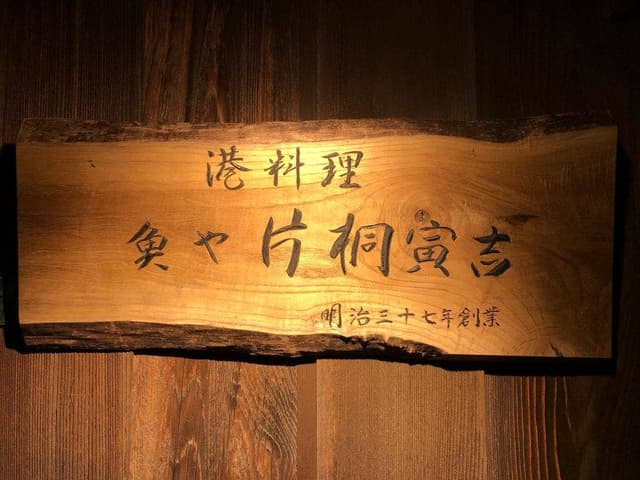 港料理
魚や片桐寅吉
明治三十七年創業